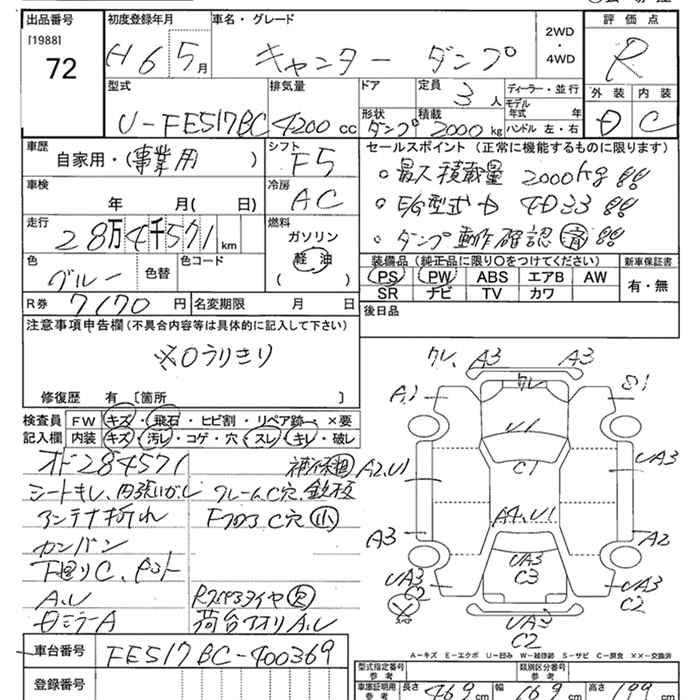 出品番号 初度登録年月 車名・グレード 2WD・4WD 評価点
[1988]
72 H6 5月 キャンター ダンプ R
型式 排気量 ドア 定員 3人 ディーラー・並行 外装 内装
U-FE517BC 4200cc 形状 ダンプ 積載 2000kg モデル年式 年 ハンドル 左・右 D C
車歴 自家用・(事業用) シフト F5 セールスポイント (正常に機能するものに限ります)
車検 年 月(日) 冷房 AC 。最大積載量 2000kg!!
走行 28万4千571km 燃料 ガソリン 軽油 ( ) 。E/G型式→ 4D33!!
。ダンプ動作確認済!!
色 ブルー 色替 色コード 装備品(純正品に限り○をつけてください) 新車保証書
PS PW ABS エアB AW 有・無
SR ナビ TV カワ
R券 7170円 名変期限 月 日 後日品
注意事項申告欄(不具合内容等は具体的に記入して下さい)
※0うりきり
修復歴 有 [箇所 ]
検査員記入欄 FW キズ・飛石・ヒビ割・リペア跡・×要
内装 キズ・汚レ・コゲ・穴・スレ・キレ・破レ
オド284571
シートキレ、内張いがし フレームC穴、
アンテナ折れ FフロアC穴(小)
カンバン
下廻りC、
A.U Rスペアタイヤ欠
ミラーA 荷台アオリA.U
車台番号 FE517BC-400369
登録番号
クレ、A3 A3
A1 クレ S1
U1
C1
A2,U1 UA3
A4,U1
A3 A2
UA3
C3
UA3 C2 UA3 C2
UA3
C2
A-キズ E-エクボ U-凹ミ W-補修跡 S-サビ C-腐食 ××-交換済
型式指定番号 参考 類別区分番号 参考
車庫証明用 参考 長さ 469cm 幅 169cm 高さ 199cm